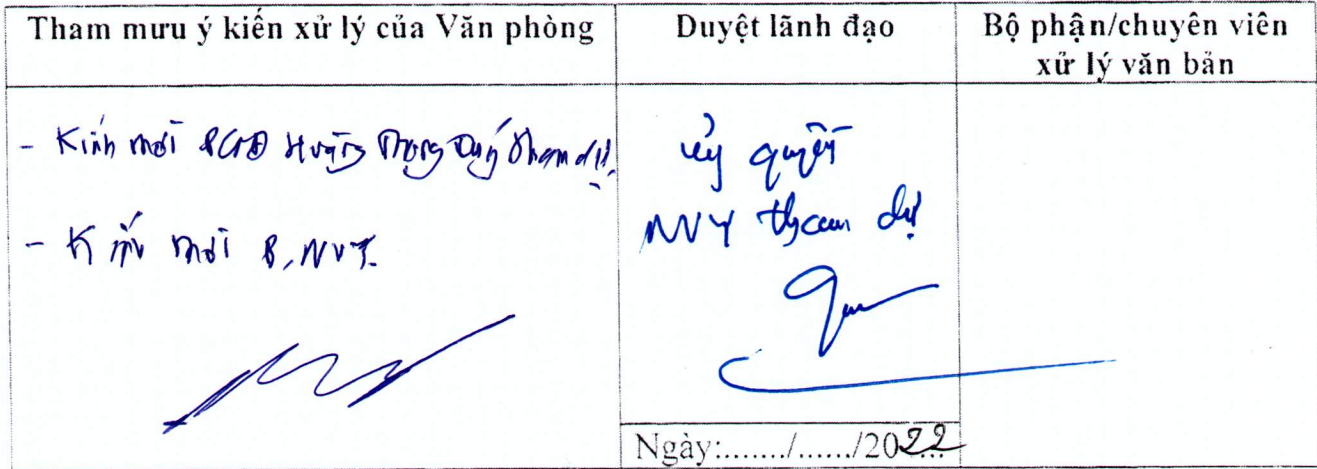 Tham mưu ý kiến xử lý của Văn phòng
Duyệt lãnh đạo
Bộ phận/chuyên viên
xử lý văn bản
- Kính mời PGĐ Hoàng Trọng Quý tham dự.
- Kính mời P. NVY.
ủy quyền
NVY tham dự
Ngày:......./....../2022